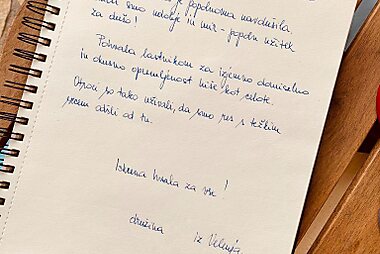 je popolnoma navdušila
smo udobje in mir - popoln užitek
za dušo!
Pohvala lastnikom za izjemno domiselno
in okusno opremljenost hiše kot celote.
Otroci so tako uživali, da smo res s težkim
srcem odšli od tu.
Iskrena hvala za vse!
družina iz Velenja